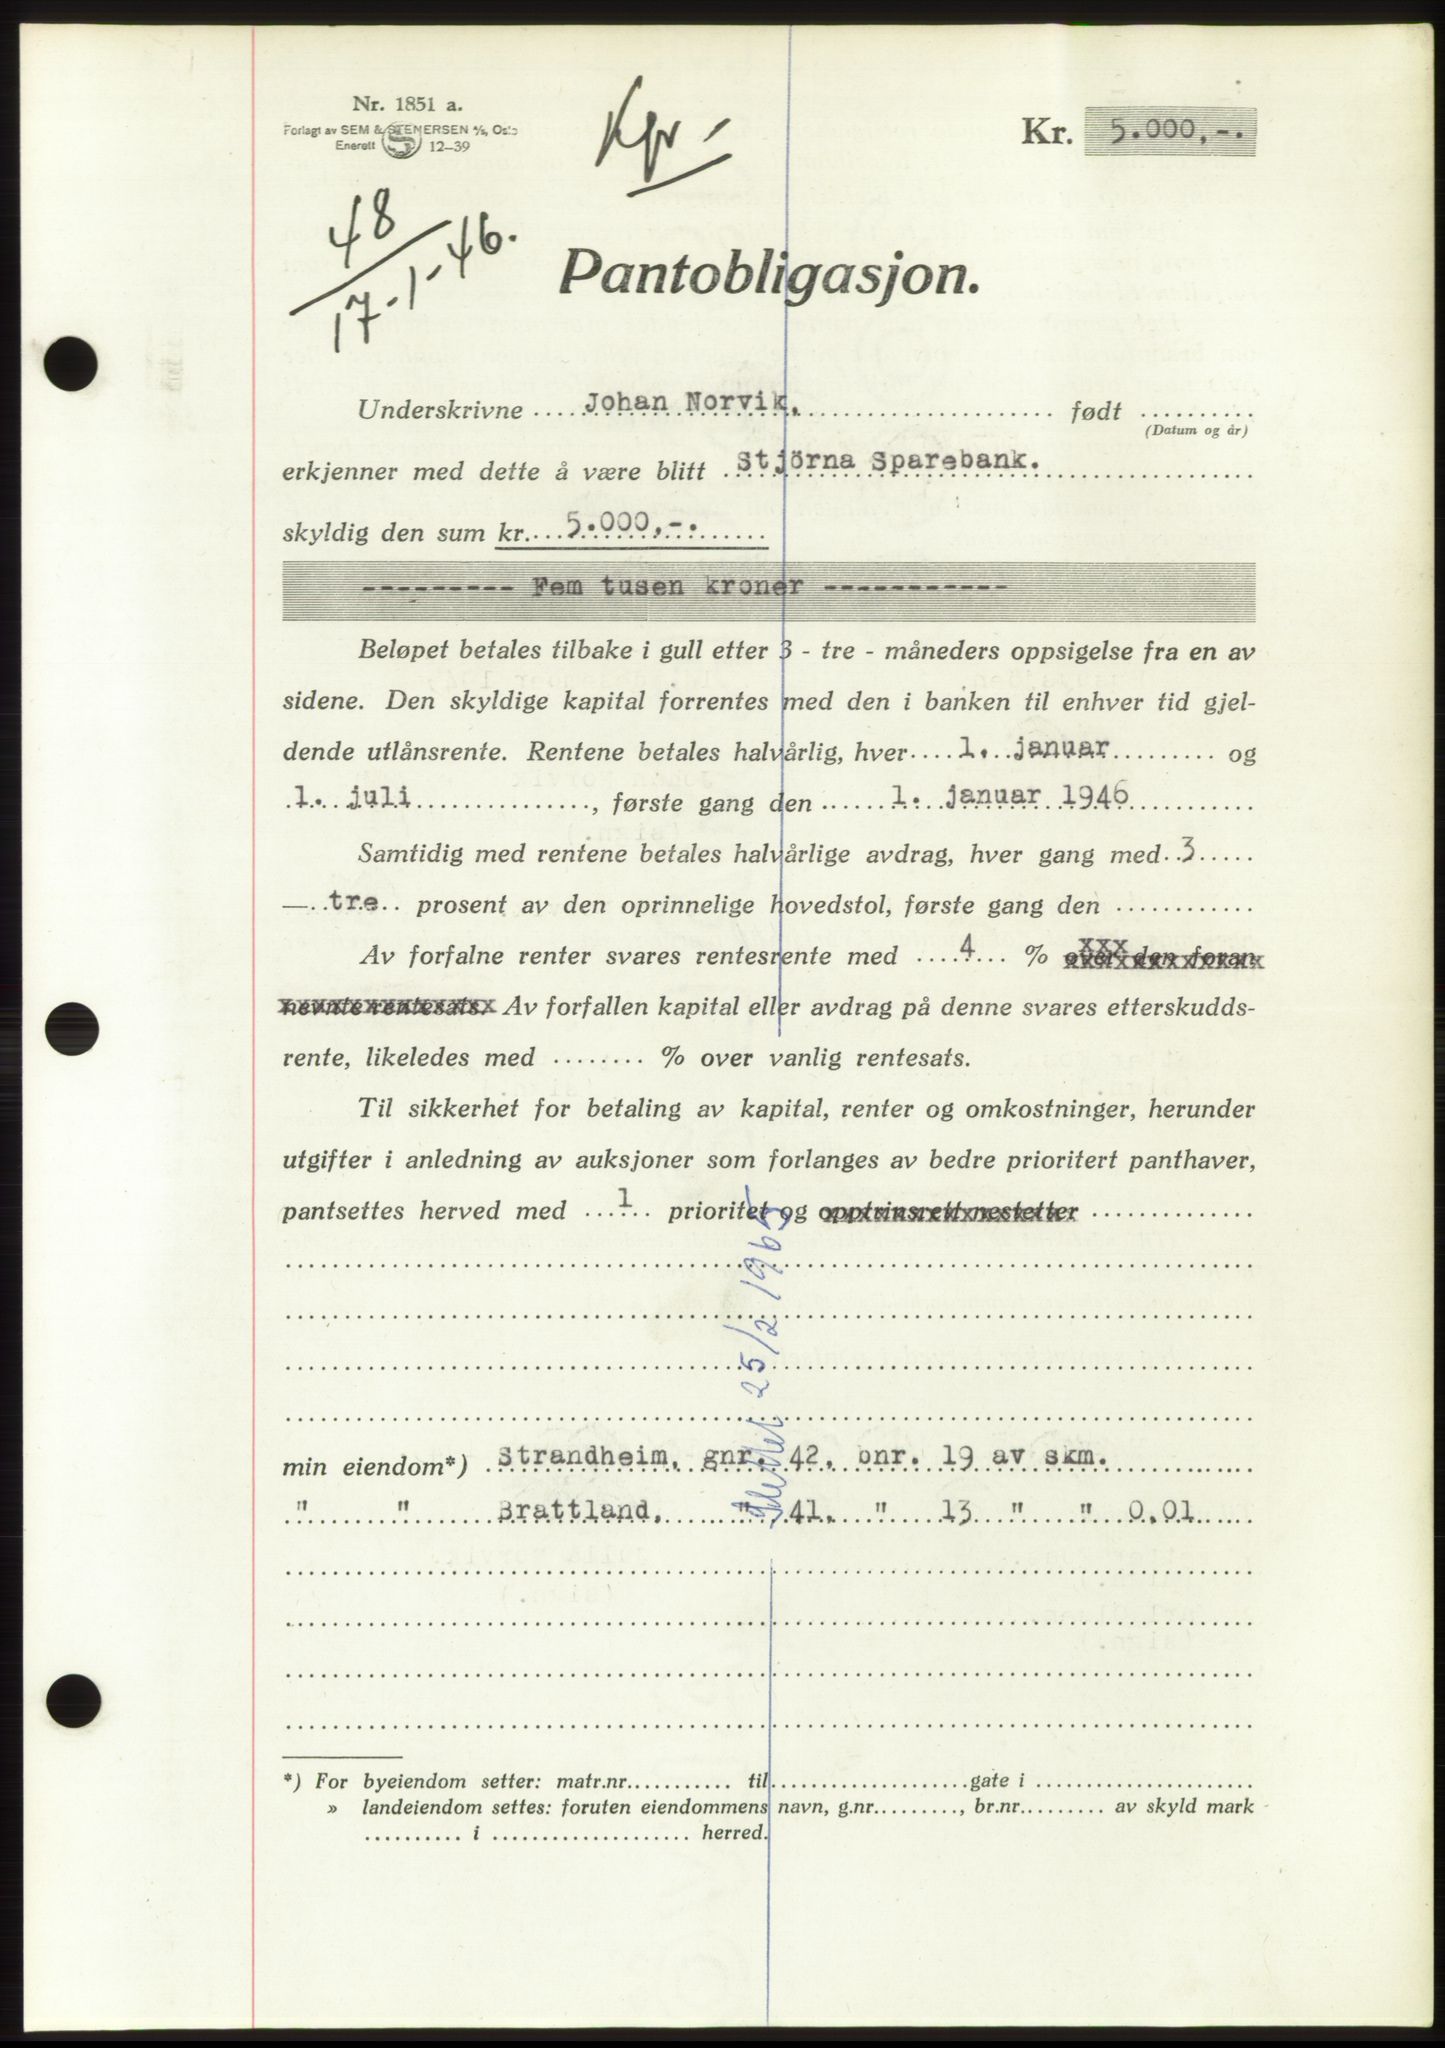 Nr. 1851 a.
Forlagt av SEM & STENERSEN A/S, Oslo
Enerett 12-39
Kpr -
Kr. 5.000,-.
48
17-1-46.
Pantobligasjon.
Underskrivne .... Johan Norvik, .... født ..........
(Datum og år)
erkjenner med dette å være blitt Stjörna Sparebank.
skyldig den sum kr. 5.000,-.
--------- Fem tusen kroner -----------
Beløpet betales tilbake i gull etter 3 - tre - måneders oppsigelse fra en av
sidene. Den skyldige kapital forrentes med den i banken til enhver tid gjel-
dende utlånsrente. Rentene betales halvårlig, hver .... 1. januar ......... og
1. juli ..............., første gang den ...... 1. januar 1946
Samtidig med rentene betales halvårlige avdrag, hver gang med 3
— tre prosent av den oprinnelige hovedstol, første gang den ............
Av forfalne renter svares rentesrente med .... 4 ... % over den foran
nevnte rentesats. Av forfallen kapital eller avdrag på denne svares etterskudds-
rente, likeledes med ........ % over vanlig rentesats.
Til sikkerhet for betaling av kapital, renter og omkostninger, herunder
utgifter i anledning av auksjoner som forlanges av bedre prioritert panthaver,
pantsettes herved med ... 1 ... prioritet og opptrinsrett nestetter ..............
Slettet 25/2 1965
min eiendom*) Strandheim, gnr. 42, bnr. 19 av skm.
" " Brattland, " 41, " 13 " " 0,01
*) For byeiendom setter: matr.nr........... til....................gate i ......................
» landeiendom settes: foruten eiendommens navn, g.nr........., br.nr......... av skyld mark
.......... i .................... herred.